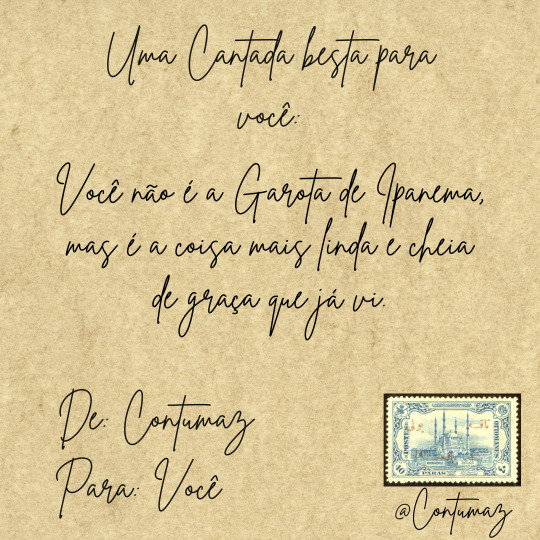 Uma Cantada besta para
você:
Você não é a Garota de Ipanema,
mas é a coisa mais linda e cheia
de graça que já vi.
De: Contumaz
Para: Você
POSTES OTTOMANES
10
PARAS
@Contumaz